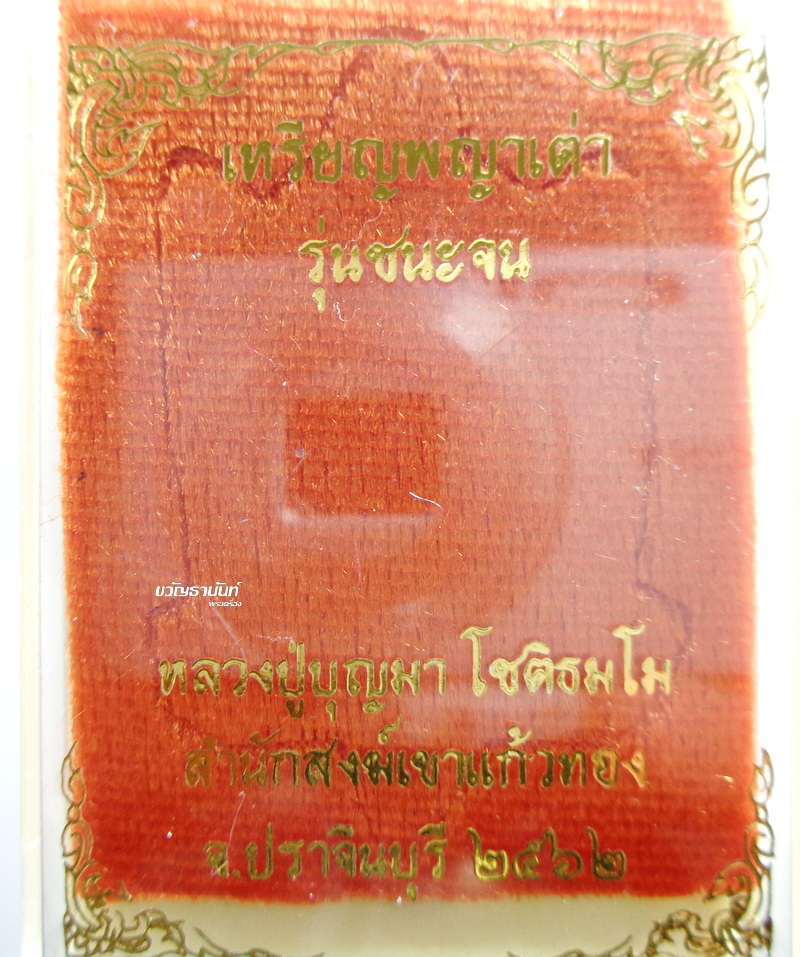 เหรียญพญาเต่า
รุ่นชนะจน
ขวัญธานันท์
พระเครื่อง
หลวงปู่บุญมา โชติธมโม
สำนักสงฆ์เขาแก้วทอง
จ.ปราจีนบุรี ๒๕๖๒